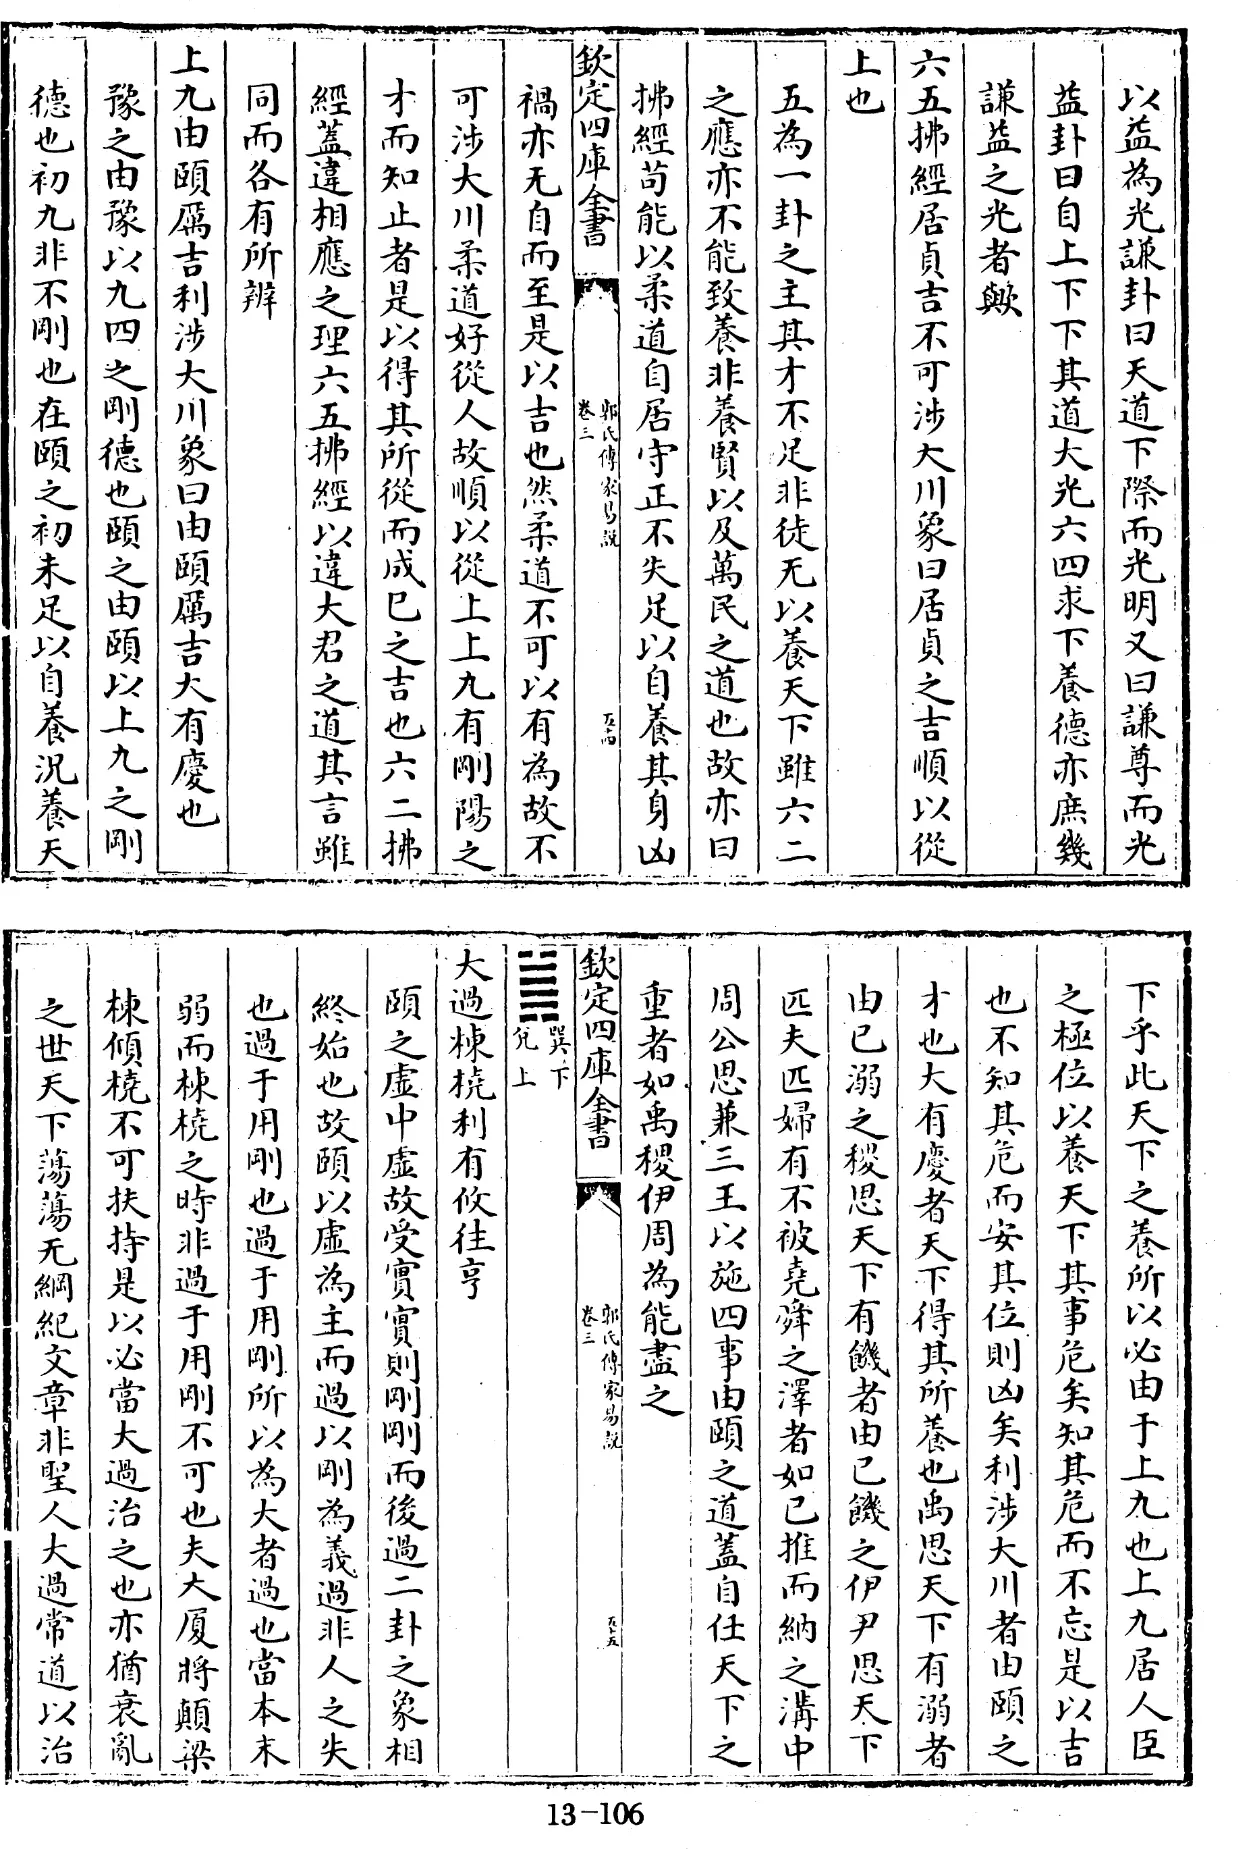 以益為光謙卦曰天道下際而光明又曰謙尊而光
益卦曰自上下下其道大光六四求下養德亦庶幾
謙益之光者歟
六五拂經居貞吉不可涉大川象曰居貞之吉順以從
上也
五為一卦之主其才不足非徒无以養天下雖六二
之應亦不能致養非養賢以及萬民之道也故亦曰
拂經苟能以柔道自居守正不失足以自養其身凶
欽定四庫全書
郭氏傳家易說
卷三
禍亦无自而至是以吉也然柔道不可以有為故不
可涉大川柔道好從人故順以從上上九有剛陽之
才而知止者是以得其所從而成已之吉也六二拂
經蓋違相應之理六五拂經以違大君之道其言雖
同而各有所辨
上九由頤厲吉利涉大川象曰由頤厲吉大有慶也
豫之由豫以九四之剛德也頤之由頤以上九之剛
德也初九非不剛也在頤之初未足以自養況養天
下乎此天下之養所以必由于上九也上九居人臣
之極位以養天下其事危矣知其危而不忘是以吉
也不知其危而安其位則凶矣利涉大川者由頤之
才也大有慶者天下得其所養也禹思天下有溺者
由已溺之稷思天下有饑者由已饑之伊尹思天下
匹夫匹婦有不被堯舜之澤者如已推而納之溝中
周公思兼三王以施四事由頤之道蓋自任天下之
重者如禹稷伊周為能盡之
欽定四庫全書
郭氏傳家易說
卷三
巽下
兌上
大過棟橈利有攸往亨
頤之虛中虛故受實實則剛剛而後過二卦之象相
終始也故頤以虛為主而過以剛為義過非人之失
也過于用剛也過于用剛所以為大者過也當本末
弱而棟橈之時非過于用剛不可也夫大厦將顛梁
棟傾橈不可扶持是以必當大過治之也亦猶衰亂
之世天下蕩蕩无綱紀文章非聖人大過常道以治
13-106